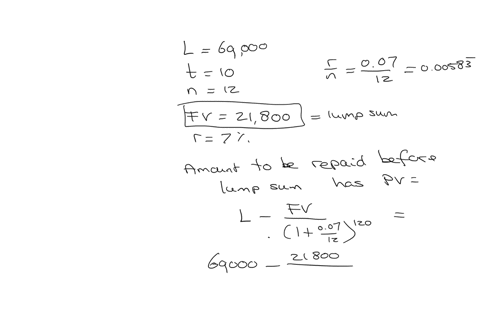 L = 69,000
t = 10
n = 12
r/n = 0.07/12 = 0.00583̄
FV = 21,800 = lump sum
r = 7%.
Amount to be repaid before
lump sum has PV =
L - FV/(1+0.07/12)^120 =
69000 - 21800